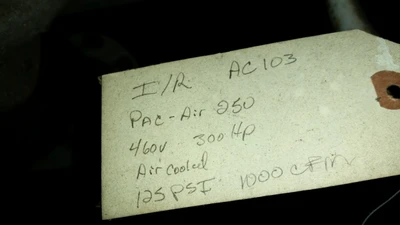 I/R AC103
PAC-Air 250
460V 300Hp
Air cooled
125 PSI 1000 CFM